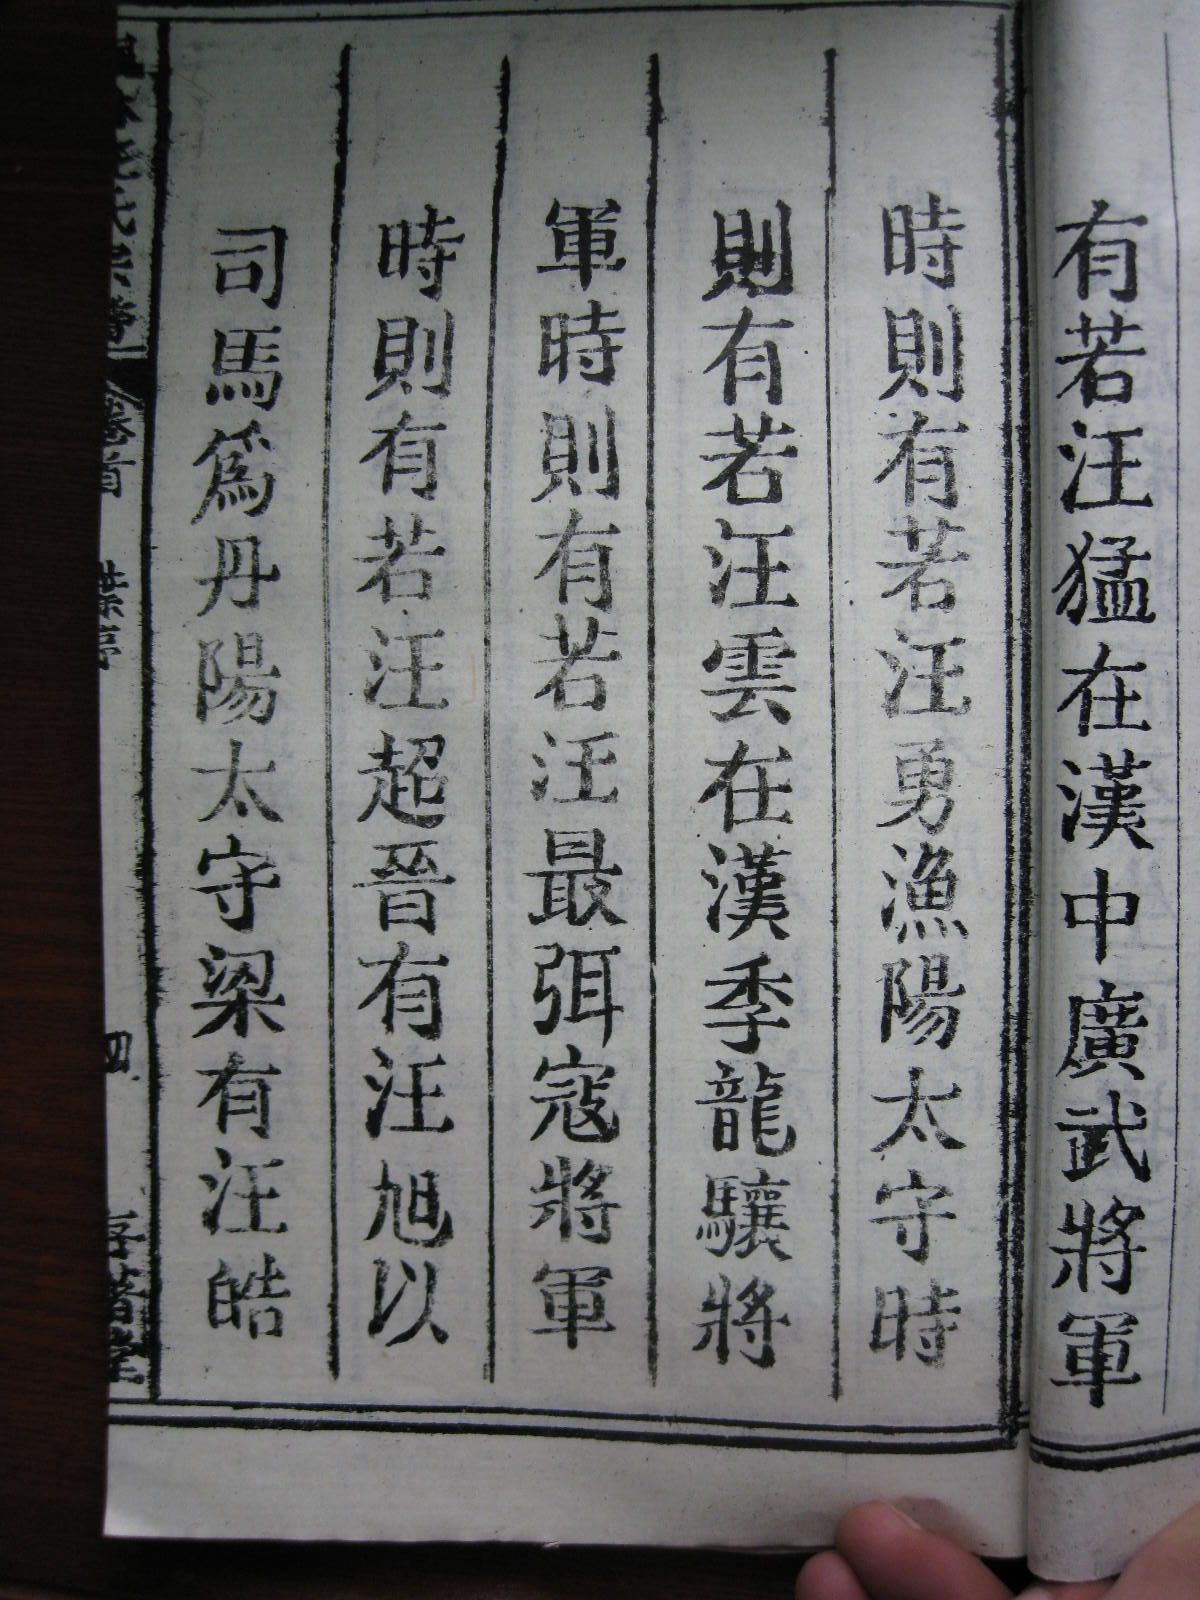 有若汪猛在漢中廣武將軍
時則有若汪勇漁陽太守時
則有若汪雲在漢季龍驤將
軍時則有若汪最弭寇將軍
時則有若汪超晉有汪旭以
司馬爲丹陽太守梁有汪皓
氏宗譜
卷首
四